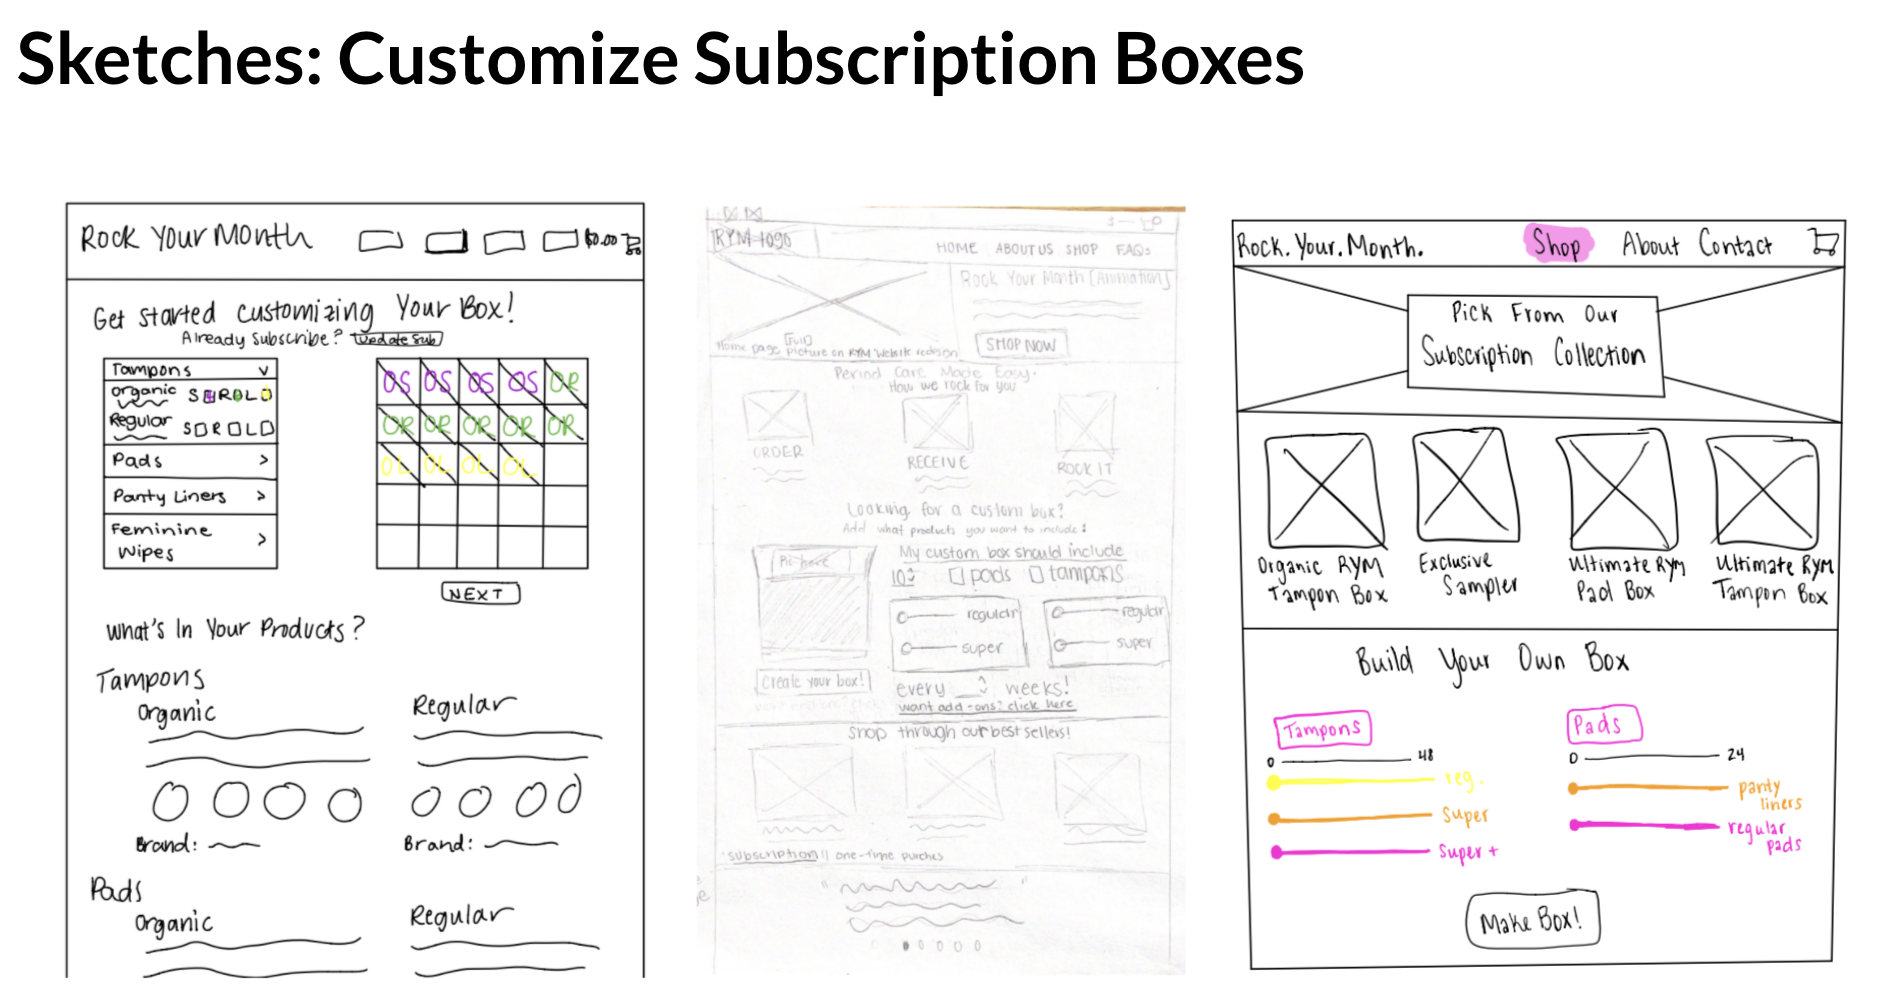 Sketches: Customize Subscription Boxes
Rock Your Month
$0.00
Get started customizing Your Box!
Already Subscribe? Update Sub
Tampons v
organic S R L
Regular S R L
Pads >
Panty Liners >
Feminine Wipes >
OS OS OS OS OR
OR OR OR OR OR
OL OL OL OL
NEXT
What's In Your Products?
Tampons
Organic
Regular
Brand:
Brand:
Pads
Organic
Regular
RYM logo
HOME ABOUT US SHOP FAQs
Rock Your Month [Animation]
[Full]
Home page picture on RYM Website redesign
SHOP NOW
Period Care Made Easy.
How we rock for you
ORDER
RECEIVE
ROCK IT
Looking for a custom box?
Add what products you want to include!
Pic here
My custom box should include
10 pods tampons
regular
super
regular
super
Create your box!
every __ weeks!
want add-ons? click here
Shop through our best sellers!
subscription || one-time purches
Rock.Your.Month.
Shop About Contact
Pick From Our
Subscription Collection
Organic RYM
Tampon Box
Exclusive
Sampler
Ultimate RYM
Pad Box
Ultimate RYM
Tampon Box
Build Your Own Box
Tampons
0 48
reg.
Super
Super +
Pads
0 24
panty
liners
regular
pads
Make Box!